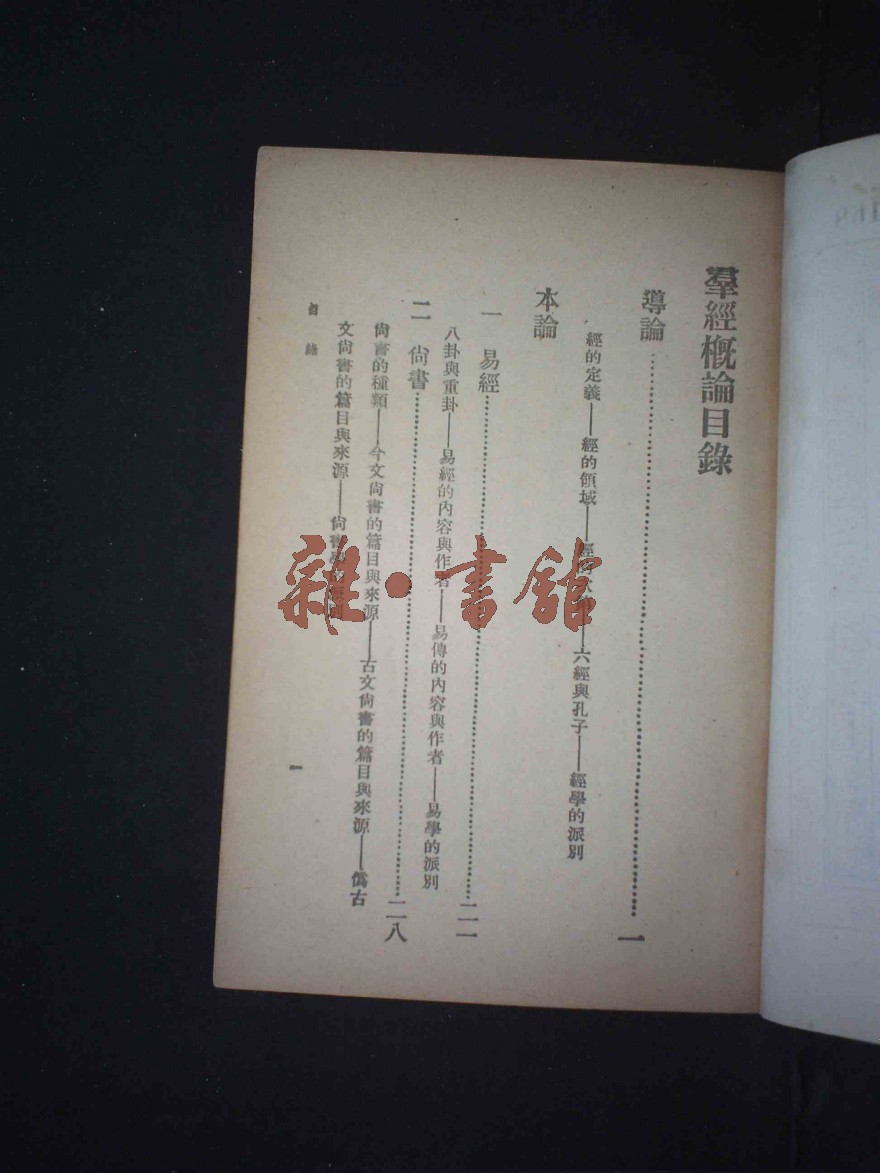 羣經槪論目錄
導論……………一
經的定義——經的領域——經的次第——六經與孔子——經學的派別
本論
一 易經……………二一
八卦與重卦——易經的內容與作者——易傳的內容與作者——易學的派別
二 尙書……………二八
尙書的種類——今文尙書的篇目與來源——古文尙書的篇目與來源——僞古
文尙書的篇目與來源——尙書學的派別
目錄
一
雜·書館